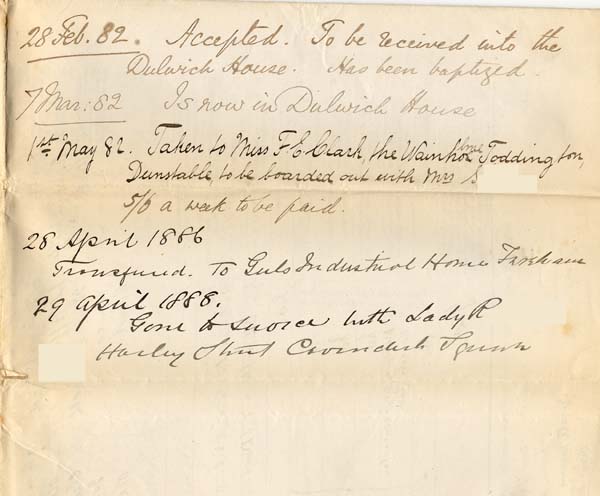 28 Feb. 82. Accepted. To be received into the
Dulwich House. Has been baptized.
7 Mar: 82 Is now in Dulwich House
1st May 82. Taken to Miss F. E. Clark, the Toddington,
Dunstable, to be boarded out with Mrs S
5/6 a week to be paid.
28 April 1886
Transferred. To Girls Industrial Home Fareham
29 April 1888.
Gone to Service with Lady R
Harley Street Cavendish Square